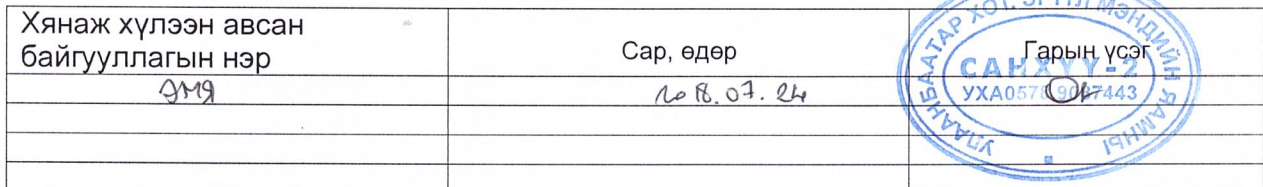 Хянаж хүлээн авсан
байгууллагын нэр
Сар, өдөр
Гарын үсэг
ЭМЯ
2018.07.24
УЛААНБААТАР ХОТ. ЭРҮҮЛ МЭНДИЙН ЯАМНЫ
САНХҮҮ-2